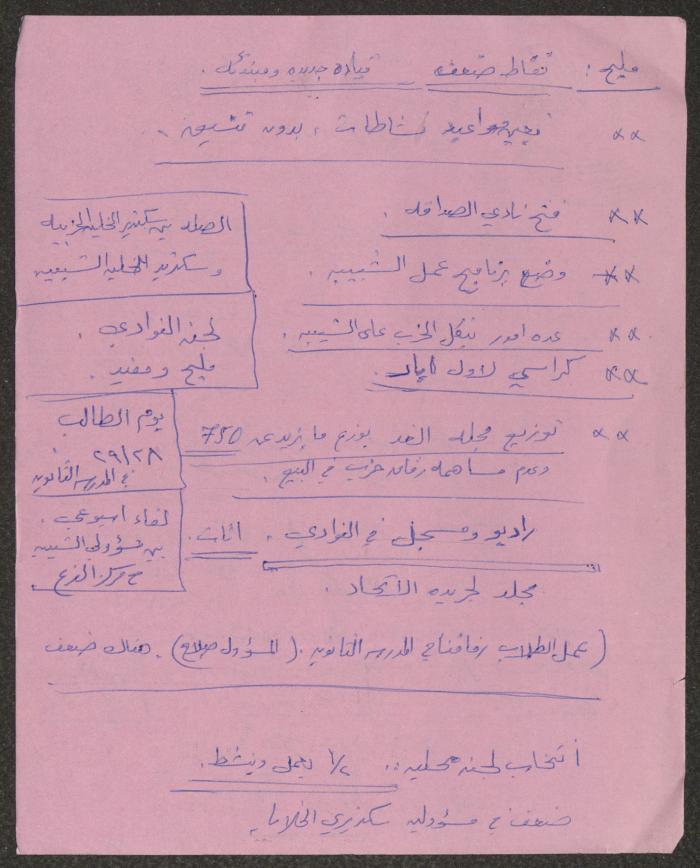 مليح : نقاط ضعف قيادة جديده ومبتدئه .
×× تعيين مواعيد نشاطات ، بدون تنسيق .
×× فتح نادي الصداقه .
×× وضع برنامج عمل الشبيبه .
×× عدة امور تتكل الحزب على الشبيبه .
×× كراسي لاول ايار .
×× توزيع مجله الغد يوزع ما يزيد عن 750
وعدم مساهمه رفاق حزب في البيع .
راديو ومسجل في النوادي . اثاث .
مجلد لجريده الاتحاد .
(عمل الطلاب رفاقنا في المدرسه الثانويه . (المسؤول صلاح) . هناك ضعف
انتخاب لجنه محليه : ١/٢ يعمل وينشط .
ضعف في مسؤوليه سكرتيري الخلايا
الصله بين سكرتير الخليه الحزبيه
وسكرتير الخليه الشبيبيه
لجنه النوادي .
مليح ومفيد .
يوم الطالب
٢٩/٢٨
في المدرسه الثانويه
لقاء اسبوعي .
بين مسؤولي الشبيبه
في مركز الفرع